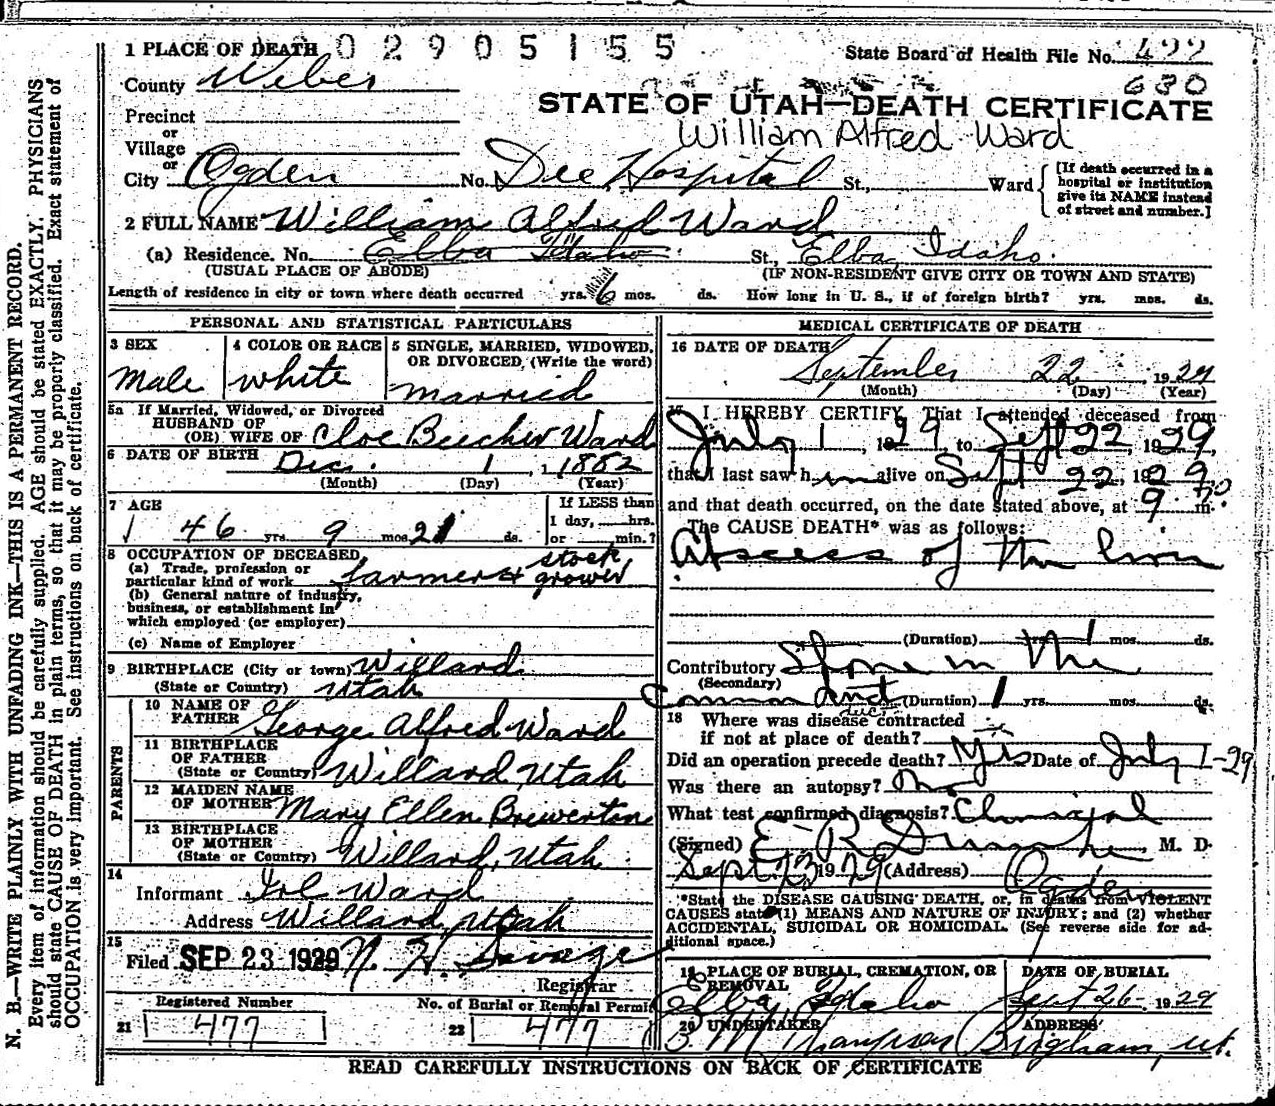 1 PLACE OF DEATH 02905155
State Board of Health File No. 477
630
County Weber
STATE OF UTAH—DEATH CERTIFICATE
Precinct
or
Village
or
William Alfred Ward
City Ogden No. Dee Hospital St., Ward
[If death occurred in a
hospital or institution
give its NAME instead
of street and number.]
2 FULL NAME William Alfred Ward
(a) Residence. No. Elba Idaho St., Elba, Idaho.
(USUAL PLACE OF ABODE) (IF NON-RESIDENT GIVE CITY OR TOWN AND STATE)
Length of residence in city or town where death occurred yrs. 6 mos. ds. How long in U. S., if of foreign birth? yrs. mos. ds.
PERSONAL AND STATISTICAL PARTICULARS
3 SEX
Male
4 COLOR OR RACE
white
5 SINGLE, MARRIED, WIDOWED,
OR DIVORCED, (Write the word)
married
5a If Married, Widowed, or Divorced
HUSBAND OF
(OR) WIFE OF Cloe Beecher Ward
6 DATE OF BIRTH Dec. 1, 1 1882
(Month) (Day) (Year)
7 AGE
46 yrs. 9 mos. 21 ds.
If LESS than
1 day, hrs.
or min.?
8 OCCUPATION OF DECEASED,
(a) Trade, profession or
particular kind of work farmer & stock grower
(b) General nature of industry,
business, or establishment in
which employed (or employer)
(c) Name of Employer
9 BIRTHPLACE (City or town) Willard
(State or Country) Utah
PARENTS
10 NAME OF
FATHER George Alfred Ward
11 BIRTHPLACE
OF FATHER
(State or Country) Willard Utah
12 MAIDEN NAME
OF MOTHER Mary Ellen Brewerton
13 BIRTHPLACE
OF MOTHER
(State or Country) Willard, Utah
14
Informant Ward
Address Willard, Utah
15
Filed SEP 23 1929 N. H. Savage
Registrar
Registered Number No. of Burial or Removal Permit
21 477 22 477
MEDICAL CERTIFICATE OF DEATH
16 DATE OF DEATH
September 22, 1929
(Month) (Day) (Year)
17 I HEREBY CERTIFY, That I attended deceased from
July 1, 1929 to Sept 22, 1929,
that I last saw him alive on Sept 22, 1929
and that death occurred, on the date stated above, at 9 m.
The CAUSE DEATH* was as follows:
Abscess of the liver
(Duration) yrs. 1 mos. ds.
Contributory Stone in the
(Secondary)
Common duct (Duration) 1 yrs. mos. ds.
18 Where was disease contracted
if not at place of death?
Did an operation precede death? Yes Date of July 1-29
Was there an autopsy? No
What test confirmed diagnosis? Clinical
(Signed) E. R. Dumke, M. D.
Sept 23 1929 (Address) Ogden
*State the DISEASE CAUSING DEATH, or, in deaths from VIOLENT
CAUSES state (1) MEANS AND NATURE OF INJURY; and (2) whether
ACCIDENTAL, SUICIDAL OR HOMICIDAL. (See reverse side for ad-
ditional space.)
19 PLACE OF BURIAL, CREMATION, OR
REMOVAL
Elba Idaho
DATE OF BURIAL
Sept 26 1929
20 UNDERTAKER
M Thompson
ADDRESS
Brigham, Ut.
READ CAREFULLY INSTRUCTIONS ON BACK OF CERTIFICATE
N. B.—WRITE PLAINLY WITH UNFADING INK—THIS IS A PERMANENT RECORD.
Every item of information should be carefully supplied. AGE should be stated EXACTLY. PHYSICIANS
should state CAUSE OF DEATH in plain terms, so that it may be properly classified. Exact statement of
OCCUPATION is very important. See instructions on back of certificate.